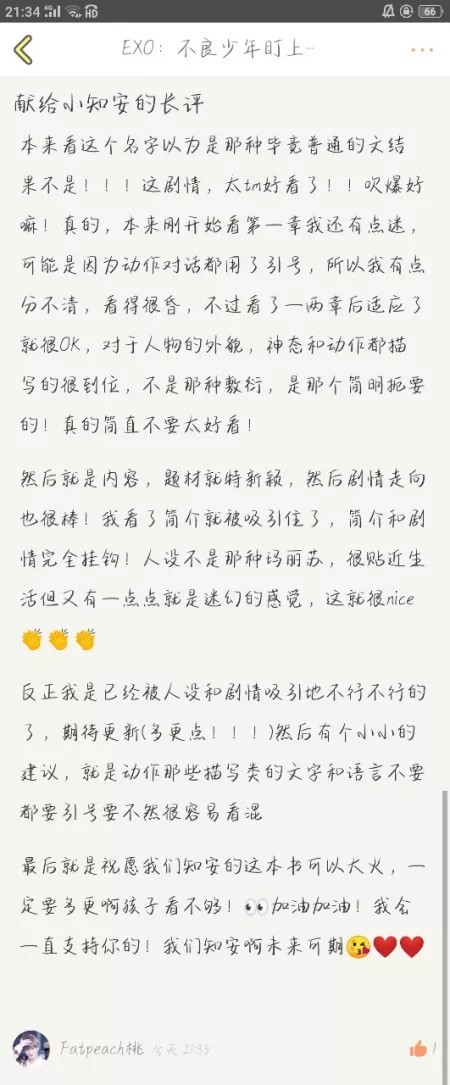 21:34
4G
HD
66
EXO：不良少年盯上…
献给小知安的长评
本来看这个名字以为是那种毕竟普通的文结
果不是！！！这剧情，太tm好看了！！吹爆好
嘛！真的，本来刚开始看第一章我还有点迷，
可能是因为动作对话都用了引号，所以我有点
分不清，看得很昏，不过看了一两章后适应了
就很OK，对于人物的外貌，神态和动作都描
写的很到位，不是那种敷衍，是那个简明扼要
的！真的简直不要太好看！
然后就是内容，题材就特新颖，然后剧情走向
也很棒！我看了简介就被吸引住了，简介和剧
情完全挂钩！人设不是那种玛丽苏，很贴近生
活但又有一点点就是迷幻的感觉，这就很nice
👏👏👏
反正我是已经被人设和剧情吸引地不行不行的
了，期待更新(多更点！！！)然后有个小小的
建议，就是动作那些描写类的文字和语言不要
都要引号要不然很容易看混
最后就是祝愿我们知安的这本书可以大火，一
定要多更啊孩子看不够！👀加油加油！我会
一直支持你的！我们知安啊未来可期😘❤️❤️
Fatpeach桃 今天 21:33
1